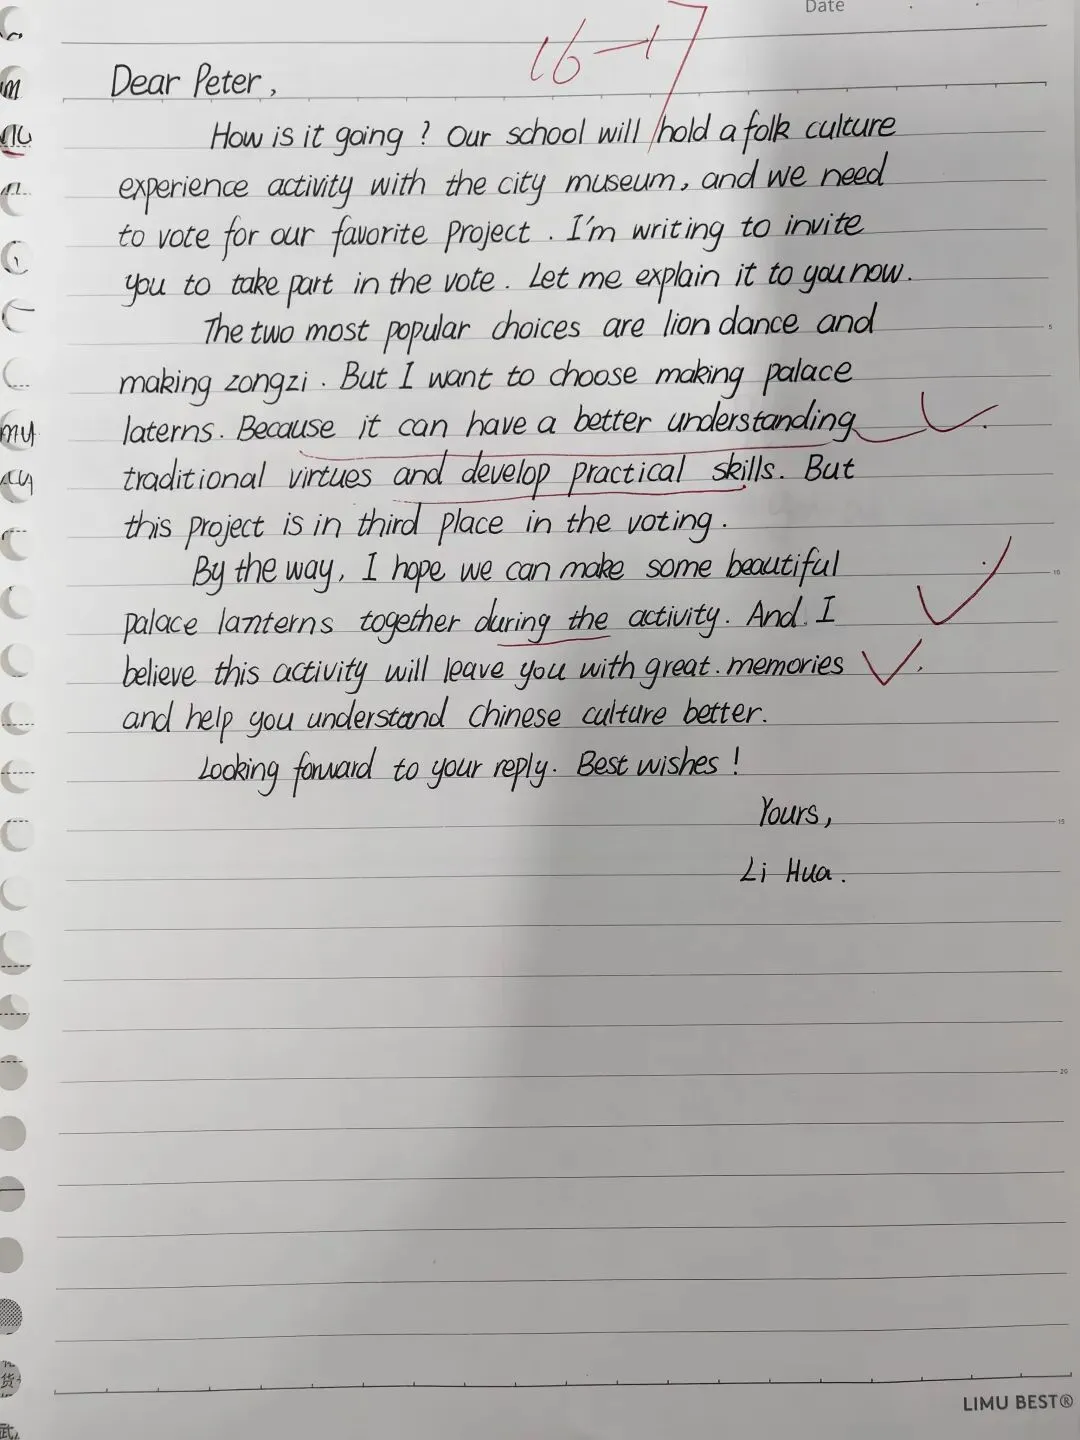 Date
16-17
Dear Peter,
How is it going ? Our school will hold a folk culture
experience activity with the city museum, and we need
to vote for our favorite project . I'm writing to invite
you to take part in the vote . Let me explain it to you now.
The two most popular choices are lion dance and
making zongzi . But I want to choose making palace
laterns. Because it can have a better understanding
traditional virtues and develop practical skills. But
this project is in third place in the voting .
By the way, I hope we can make some beautiful
palace lanterns together during the activity. And I
believe this activity will leave you with great memories
and help you understand Chinese culture better.
Looking forward to your reply. Best wishes !
Yours,
Li Hua.
5
10
15
20
LIMU BEST®
my
货
武